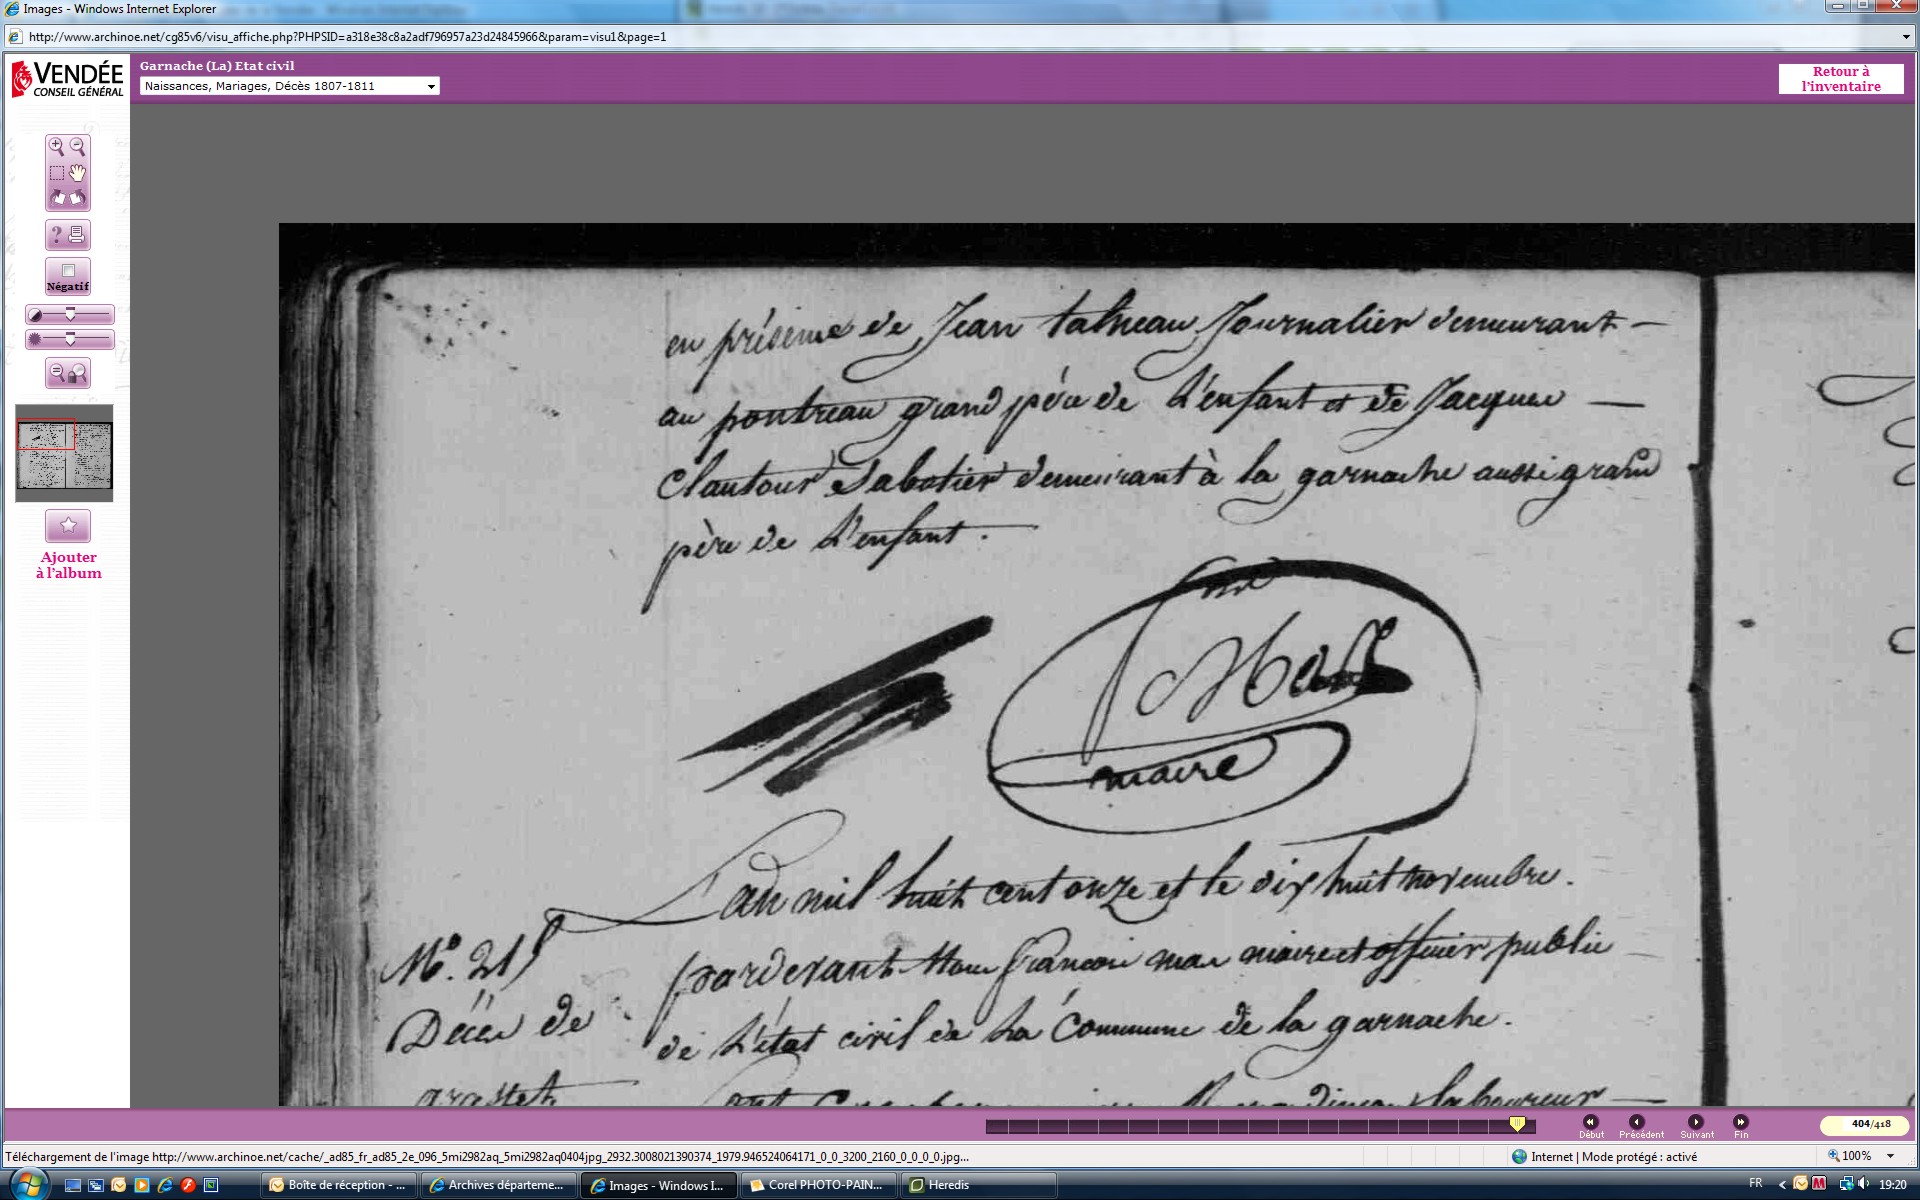 Images - Windows Internet Explorer
http://www.archinoe.net/cg85v6/visu_affiche.php?PHPSID=a318e38c8a2adf796957a23d24845966&param=visu1&page=1
VENDÉE
CONSEIL GÉNÉRAL
Garnache (La) Etat civil
Naissances, Mariages, Décès 1807-1811
Retour à
l'inventaire
Négatif
Ajouter
à l'album
en présence de Jean talneau Journalier demeurant
au pontreau grand père de L'enfant et de Jacques
Clautour Sabotier demeurant à la garnache aussi grand
père de L'enfant.
maire
L'an mil huit cent onze et le dix huit novembre.
No. 215
pardevant Nous françois mas maire et officier public
Décès de
de L'état civil de La Commune de la garnache.
grasset
laboureur
404/418
Début
Précédent
Suivant
Fin
Téléchargement de l'image http://www.archinoe.net/cache/_ad85_fr_ad85_2e_096_5mi2982aq_5mi2982aq0404jpg_2932.3008021390374_1979.946524064171_0_0_3200_2160_0_0_0_0.jpg...
Internet | Mode protégé : activé
100%
Boîte de réception - ...
Archives départeme...
Images - Windows I...
Corel PHOTO-PAIN...
Heredis
FR
19:20